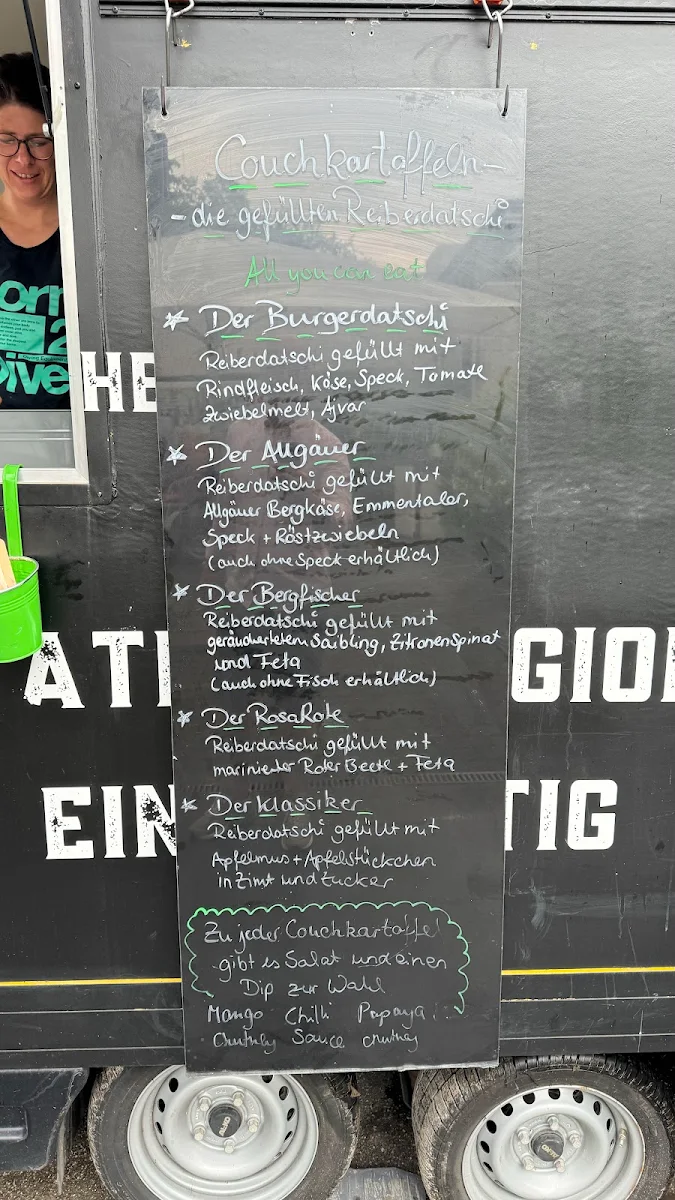 Couchkartoffeln-
- die gefüllten Reiberdatschi
All you can eat
* Der Burgerdatschi
Reiberdatschi gefüllt mit
Rindfleisch, Käse, Speck, Tomate
Zwiebelmelt, Ajvar
* Der Allgäuer
Reiberdatschi gefüllt mit
Allgäuer Bergkäse, Emmentaler,
Speck + Röstzwiebeln
(auch ohne Speck erhältlich)
* Der Bergfischer
Reiberdatschi gefüllt mit
geräuchertetem Saibling, Zitronenspinat
und Feta
(auch ohne Fisch erhältlich)
* Der RosaRote
Reiberdatschi gefüllt mit
marinierter Roter Beete + Feta
* Der Klassiker
Reiberdatschi gefüllt mit
Apfelmus + Apfelstückchen
in Zimt und Zucker
Zu jeder Couchkartoffel
gibt es Salat und einen
Dip zur Wahl
Mango Chilli Papaya
Chutney Sauce chutney
HE
ATI GIO
EIN TIG